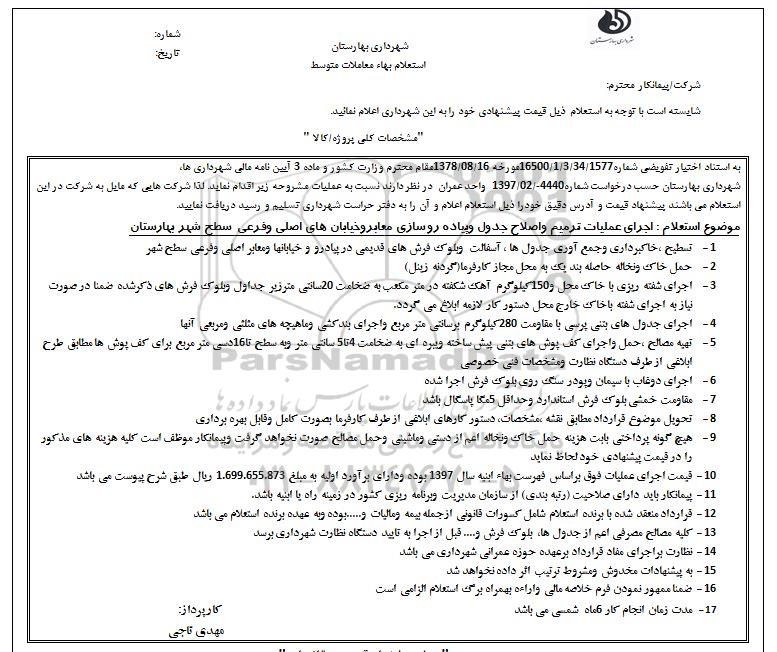 شهرداری بهارستان
شماره:
شهرداری بهارستان
تاریخ:
استعلام بهاء معاملات متوسط
شرکت/پیمانکار محترم:
شایسته است با توجه به استعلام ذیل قیمت پیشنهادی خود را به این شهرداری اعلام نمائید.
"مشخصات کلی پروژه/کالا "
به استناد اختیار تفویضی شماره16500/1/3/34/1577مورخه 1378/08/16مقام محترم وزارت کشور و ماده 3 آیین نامه مالی شهرداری ها،
شهرداری بهارستان حسب درخواست شماره4440-/1397/02 واحد عمران در نظر دارند نسبت به عملیات مشروحه زیر اقدام نماید. لذا شرکت هایی که مایل به شرکت در این
استعلام می باشند پیشنهاد قیمت و آدرس دقیق خودرا ذیل استعلام اعلام و آن را به دفتر حراست شهرداری تسلیم و رسید دریافت نمایید.
موضوع استعلام : اجرای عملیات ترمیم واصلاح جدول وپیاده روسازی معابروخیابان های اصلی وفرعی سطح شهر بهارستان
1- تسطیح ،خاکبرداری وجمع آوری جدول ها ، آسفالت وبلوک فرش های قدیمی در پیادرو و خیابانها ومعابر اصلی وفرعی سطح شهر
2- حمل خاک ونخاله حاصله بند یک به محل مجاز کارفرما(گردنه زینل)
3- اجرای شفته ریزی با خاک محل و150کیلوگرم آهک شکفته در متر مکعب به ضخامت 20سانتی مترزیر جداول وبلوک فرش های ذکرشده ضمنا در صورت
نیاز به اجرای شفته باخاک خارج محل دستور کار لازمه ابلاغ می گردد.
4- اجرای جدول های بتنی پرسی با مقاومت 280کیلوگرم برسانتی متر مربع واجرای بندکشی وماهیچه های مثلثی ومربعی آنها
5- تهیه مصالح ،حمل واجرای کف پوش های بتنی پیش ساخته ویبره ای به ضخامت 4تا5 سانتی متر وبه سطح تا16دسی متر مربع برای کف پوش ها مطابق طرح
ابلاغی از طرف دستگاه نظارت ومشخصات فنی خصوصی
6- اجرای دوغاب با سیمان وپودر سنگ روی بلوک فرش اجرا شده
7- مقاومت خمشی بلوک فرش استاندارد وحداقل 5مگا پاسگال باشد
8- تحویل موضوع قرارداد مطابق نقشه ،مشخصات، دستور کارهای ابلاغی از طرف کارفرما بصورت کامل وقابل بهره برداری
9- هیچ گونه پرداختی بابت هزینه حمل خاک ونخاله اعم از دستی وماشینی وحمل مصالح صورت نخواهد گرفت وپیمانکار موظف است کلیه هزینه های مذکور
را در قیمت پیشنهادی خود لحاظ نماید
10- قیمت اجرای عملیات فوق براساس فهرست بهاء ابنیه سال 1397 بوده ودارای برآورد اولیه به مبلغ 1.699.655.873 ریال طبق شرح پیوست می باشد
11- پیمانکار باید دارای صلاحیت (رتبه بندی) از سازمان مدیریت وبرنامه ریزی کشور در زمینه راه یا ابنیه باشد.
12- قرارداد منعقد شده با برنده استعلام شامل کسورات قانونی ازجمله بیمه ومالیات و.....بوده وبه عهده برنده استعلام می باشد
13- کلیه مصالح مصرفی اعم از جدول ها، بلوک فرش و.... قبل از اجرا به تایید دستگاه نظارت شهرداری برسد
14- نظارت براجرای مفاد قرارداد برعهده حوزه عمرانی شهرداری می باشد
15- به پیشنهادات مخدوش ومشروط ترتیب اثر داده نخواهد شد
16- ضمنا ممهور نمودن فرم خلاصه مالی واراءه بهمراه برگ استعلام الزامی است
17- مدت زمان انجام کار 6ماه شمسی می باشد
کارپرداز:
مهدی تاجی
ParsNamadData
۰۲۱-۸۸۳۴۹۶۷۰-۵